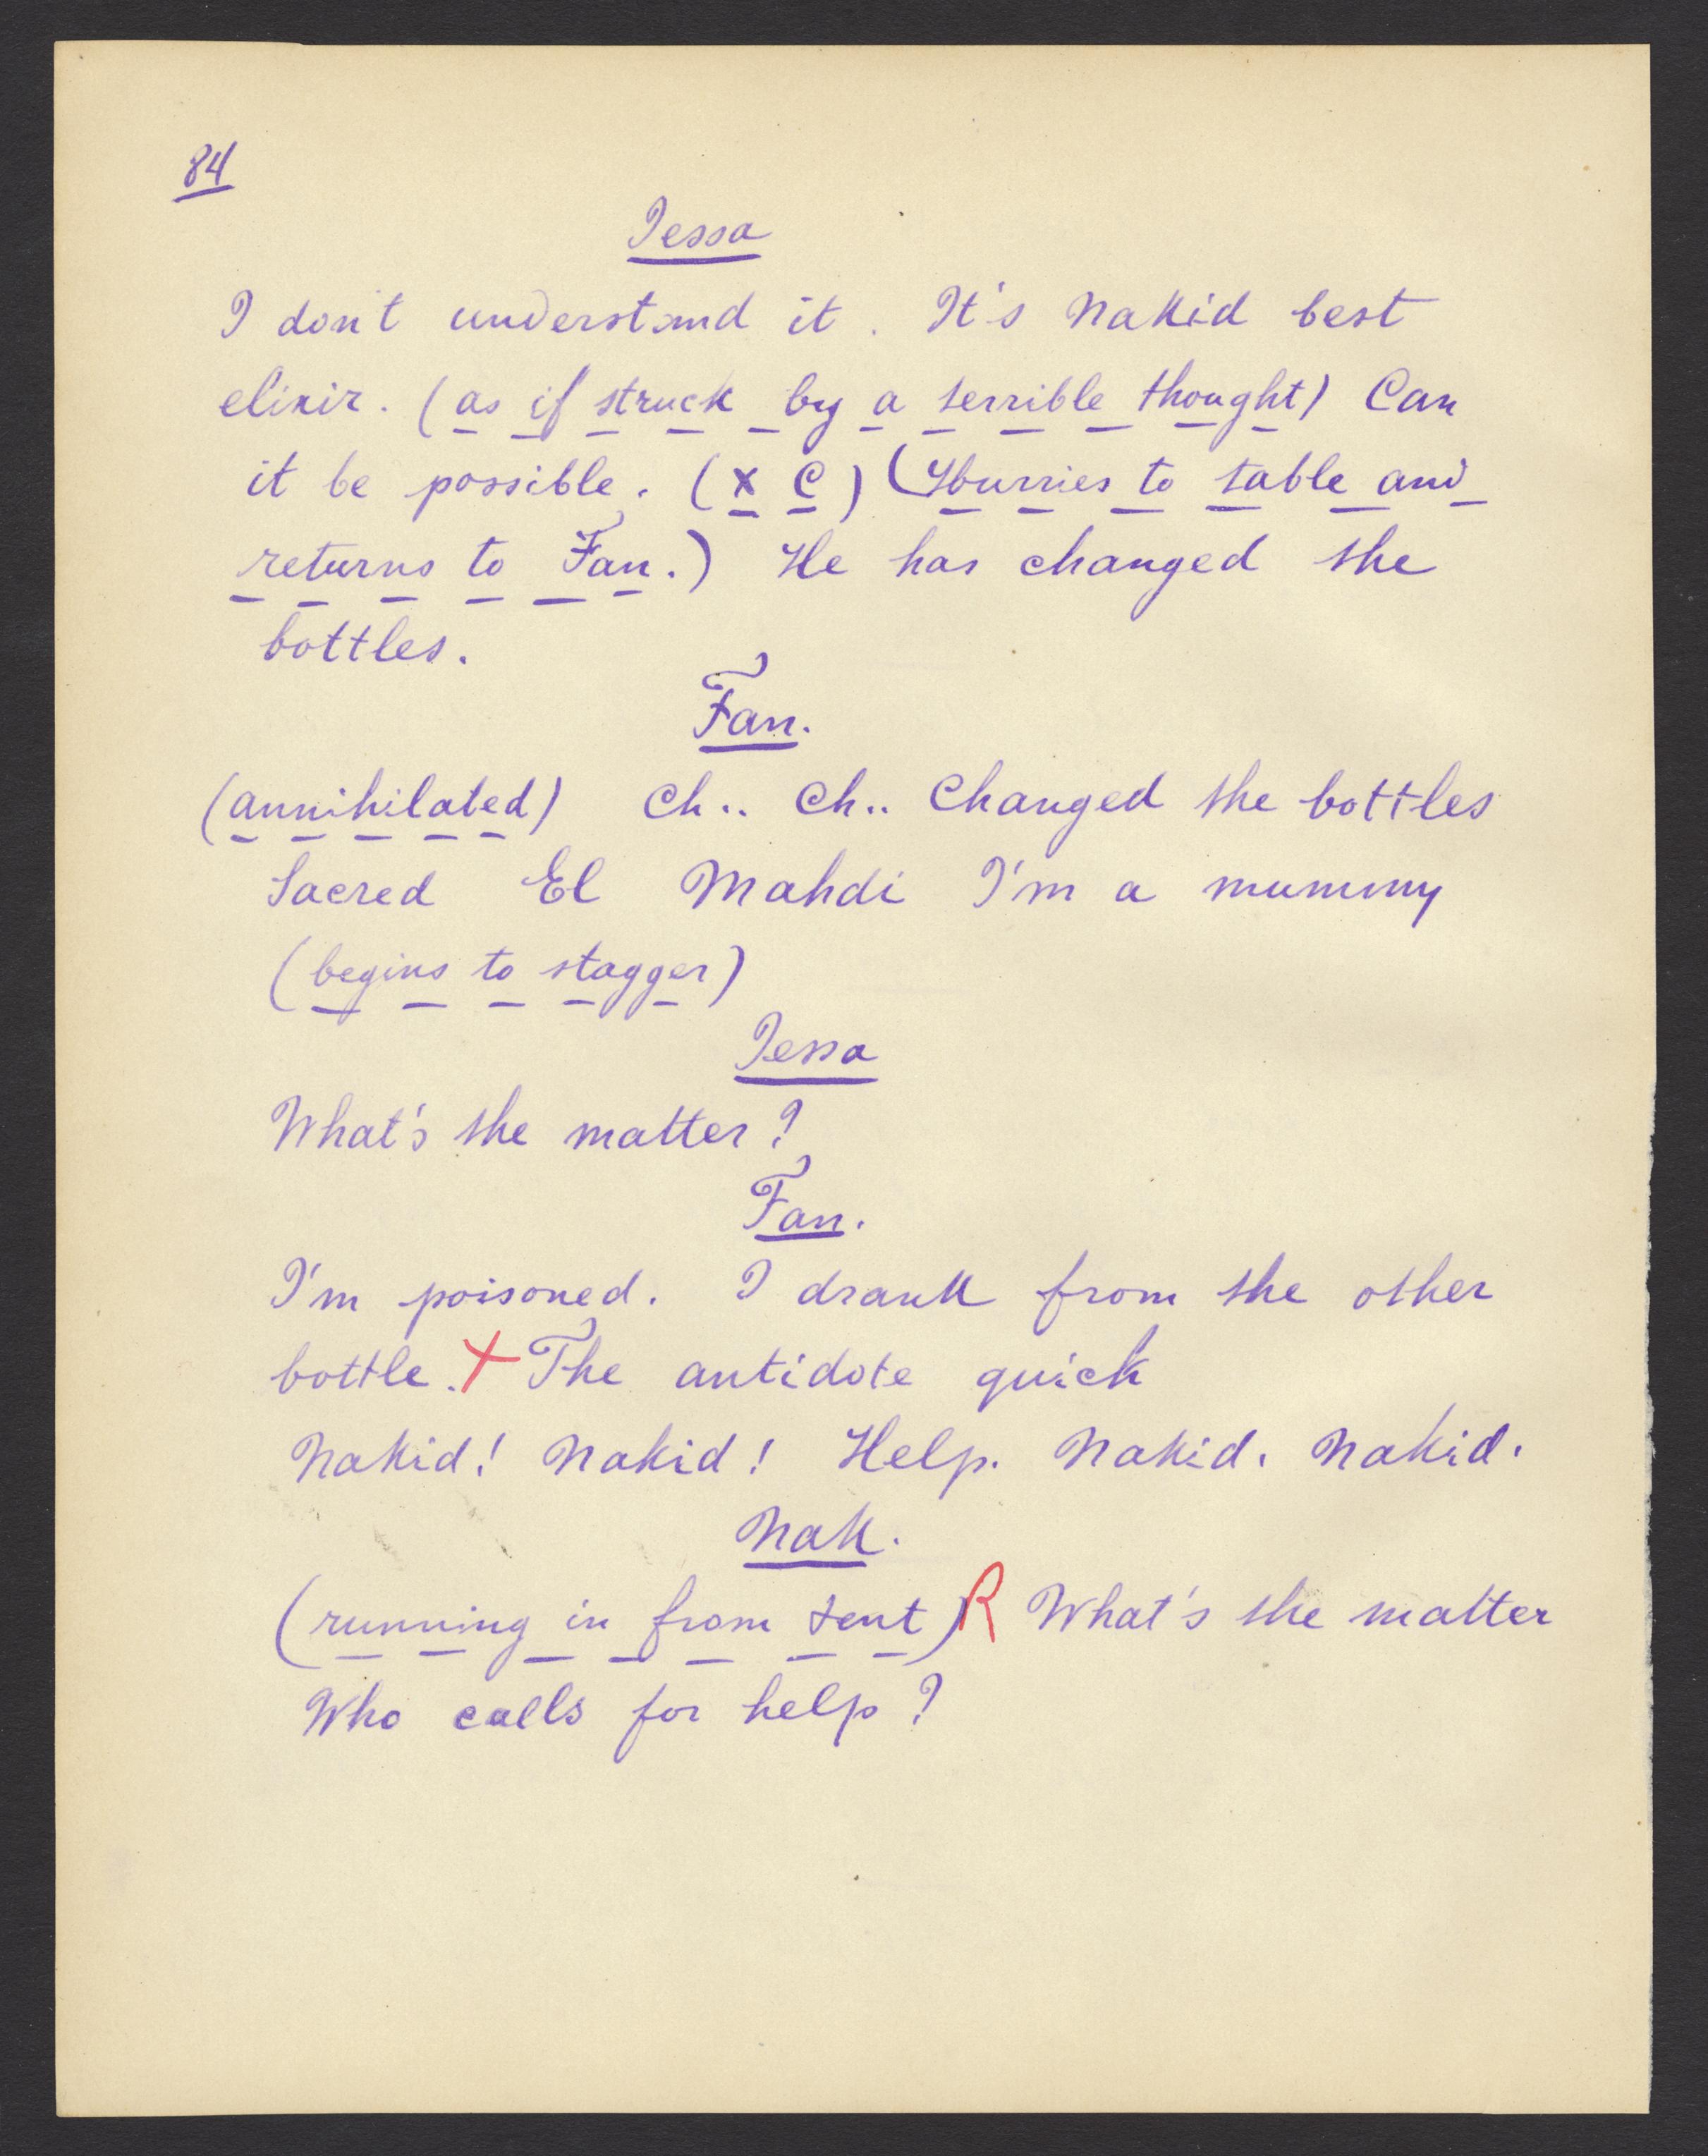 84
Jessa
I don't understand it. It's Nakid best
elixir. (as if struck by a terrible thought) Can
it be possible. (X C) (Hurries to table and
returns to Fan.) He has changed the
bottles.
Fan.
(annihilated) Ch.. Ch.. Changed the bottles
Sacred El Mahdi I'm a mummy
(begins to stagger)
Jessa
What's the matter?
Fan.
I'm poisoned. I drank from the other
bottle. X The antidote quick
Nakid! Nakid! Help. Nakid. Nakid.
Nak.
(running in from tent) R What's the matter
Who calls for help?